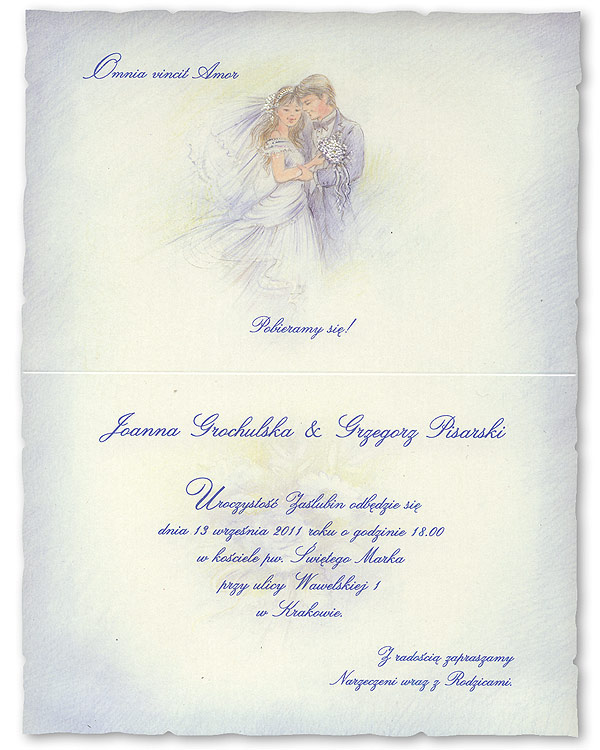 Omnia vincit Amor
Pobieramy się!
Joanna Grochulska & Grzegorz Pisarski
Uroczystość Zaślubin odbędzie się
dnia 13 września 2011 roku o godzinie 18.00
w kościele pw. Świętego Marka
przy ulicy Wawelskiej 1
w Krakowie.
Z radością zapraszamy
Narzeczeni wraz z Rodzicami.